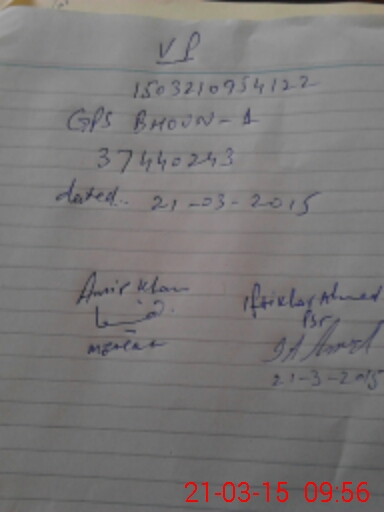 VP
1503210954122
GPS BHOUN-1
37440243
dated.. 21-03-2015
Amir Khan
Iftikhar Ahmed
21-3-2015
21-03-15 09:56